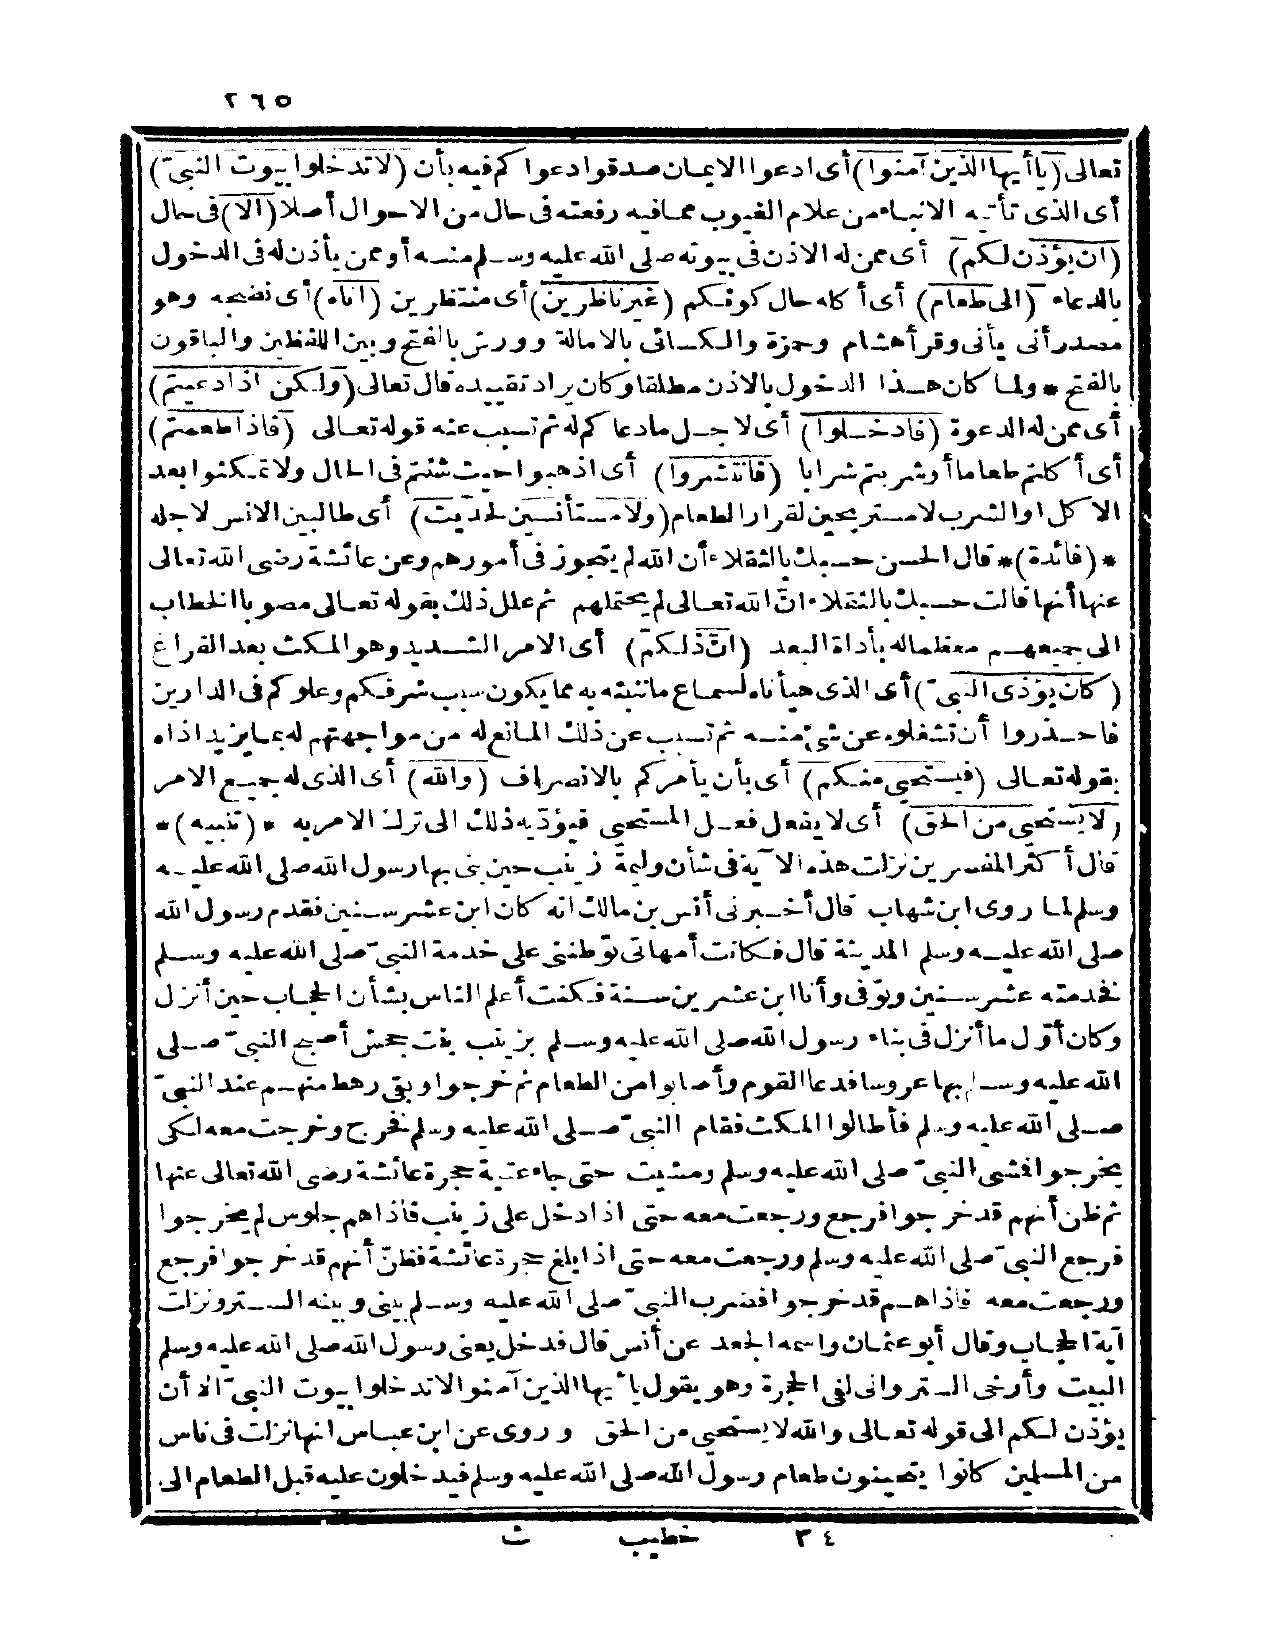 ٢٦٥
تعالى (يا أيها الذين آمنوا) أى ادعوا الايمان صدقوا دعواكم فيه بأن (لا تدخلوا بيوت النبىّ)
أى الذى تأتيه الانباء من علام الغيوب مما فيه رفعته فى حال من الاحوال أصلا (الا) فى حال
(ان يؤذن لكم) أى ممن له الاذن فى بيوته صلى الله عليه وسلم منه أو ممن يأذن له فى الدخول
بالدعاء (الى طعام) أى أكله حال كونكم (غير ناظرين) أى منتظرين (اناه) أى نضجه وهو
مصدر أنى يأنى وقرأ هشام وحمزة والكسائى بالامالة وورش بالفتح وبين اللفظين والباقون
بالفتح * ولما كان هذا الدخول بالاذن مطلقا وكان يراد تقييده قال تعالى (ولكن اذا دعيتم)
أى ممن له الدعوة (فادخلوا) أى لاجل ما دعاكم له ثم تسبب عنه قوله تعالى (فاذا طعمتم)
أى أكلتم طعاما أو شربتم شرابا (فانتشروا) أى اذهبوا حيث شئتم فى الحال ولا تمكثوا بعد
الاكل او الشرب لا مستريحين لقرار الطعام (ولا مستأنسين لحديث) أى طالبين الانس لاجله
* (فائدة) * قال الحسن حسبك بالثقلاء أن الله لم يتجوز فى أمورهم وعن عائشة رضى الله تعالى
عنها أنها قالت حسبك بالثقلاء انّ الله تعالى لم يحتملهم ثم علل ذلك بقوله تعالى مصوبا الخطاب
الى جميعهم معظما له بأداة البعد (انّ ذلكم) أى الامر الشديد وهو المكث بعد الفراغ
(كان يؤذى النبىّ) أى الذى هيأناه لسماع ما ننبئه به مما يكون سبب شرفكم وعلوكم فى الدارين
فاحذروا أن تشغلوه عن شئ منه ثم تسبب عن ذلك المانع له من مواجهتهم له بما يزيد اذاه
بقوله تعالى (فيستحيى منكم) أى بأن يأمركم بالانصراف (والله) أى الذى له جميع الامر
(لا يستحيى من الحق) أى لا يفعل فعل المستحيى فيؤديه ذلك الى ترك الامر به * (تنبيه) *
قال أكثر المفسرين نزلت هذه الآية فى شأن وليمة زينب حين بنى بها رسول الله صلى الله عليه
وسلم لما روى ابن شهاب قال أخبرنى أنس بن مالك انه كان ابن عشر سنين فقدم رسول الله
صلى الله عليه وسلم المدينة قال فكانت أمهاتى توطننى على خدمة النبىّ صلى الله عليه وسلم
فخدمته عشر سنين وتوفى وأنا ابن عشرين سنة فكنت أعلم الناس بشأن الحجاب حين أنزل
وكان أوّل ما أنزل فى بناء رسول الله صلى الله عليه وسلم بزينب بنت جحش أصبح النبىّ صلى
الله عليه وسلم بها عروسا فدعا القوم وأصابوا من الطعام ثم خرجوا وبقى رهط منهم عند النبىّ
صلى الله عليه وسلم فأطالوا المكث فقام النبىّ صلى الله عليه وسلم فخرج وخرجت معه لكى
يخرجوا فمشى النبىّ صلى الله عليه وسلم ومشيت حتى جاء عتبة حجرة عائشة رضى الله تعالى عنها
ثم ظن أنهم قد خرجوا فرجع ورجعت معه حتى اذا دخل على زينب فاذا هم جلوس لم يخرجوا
فرجع النبىّ صلى الله عليه وسلم ورجعت معه حتى اذا بلغ حجرة عائشة فظنّ أنهم قد خرجوا فرجع
ورجعت معه فاذا هم قد خرجوا فضرب النبىّ صلى الله عليه وسلم بينى وبينه الستر ونزلت
آية الحجاب وقال أبو عثمان واسمه الجعد عن أنس قال فدخل يعنى رسول الله صلى الله عليه وسلم
البيت وأرخى الستر وانى لفى الحجرة وهو يقول يا أيها الذين آمنوا لا تدخلوا بيوت النبىّ الا أن
يؤذن لكم الى قوله تعالى والله لا يستحيى من الحق وروى عن ابن عباس انها نزلت فى ناس
من المسلمين كانوا يتحينون طعام رسول الله صلى الله عليه وسلم فيدخلون عليه قبل الطعام الى
٣٤ خطيب ث